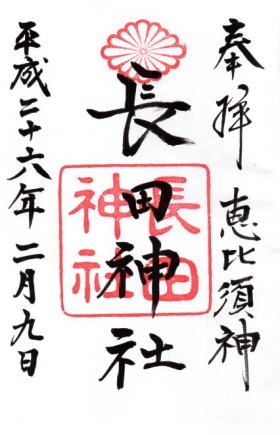 奉拝 恵比須神
長田神社
長田神社
平成二十六年二月九日